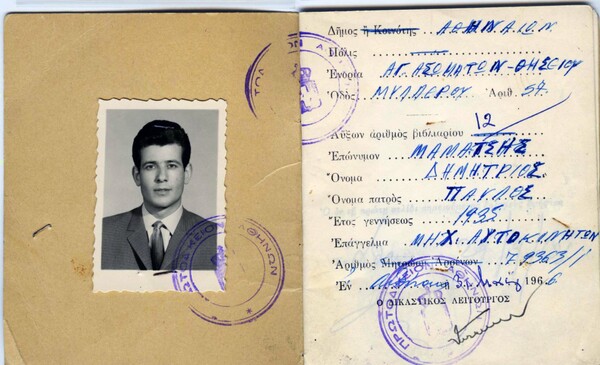 Δῆμος ἢ Κοινότης ΑΘΗΝΑΙΩΝ
Πόλις
Ἐνορία ΑΓ. ΑΣΩΜΑΤΩΝ-ΘΗΣΕΙΟΥ
Ὁδὸς ΜΥΛΛΕΡΟΥ Ἀριθ. 57
Αὔξων ἀριθμὸς βιβλιαρίου 12
Ἐπώνυμον ΜΑΜΑΤΣΗΣ
Ὄνομα ΔΗΜΗΤΡΙΟΣ
Ὄνομα πατρὸς ΠΑΥΛΟΣ
Ἔτος γεννήσεως 1935
Ἐπάγγελμα ΜΗΧ. ΑΥΤΟΚΙΝΗΤΩΝ
Ἀριθμὸς Μητρώου Ἀρρένων
Ἐν 31 196
Ο ΔΙΚΑΣΤΙΚΟΣ ΛΕΙΤΟΥΡΓΟΣ
ΠΡΩΤΟΔΙΚΕΙΟΝ
ΑΘΗΝΩΝ